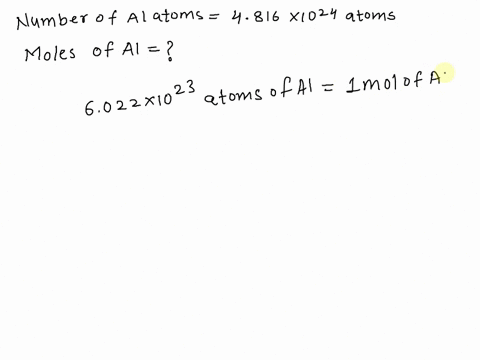 Number of Al atoms = 4.816 ×10²⁴ atoms
Moles of Al = ?
6.022×10²³ atoms of Al = 1 mol of A